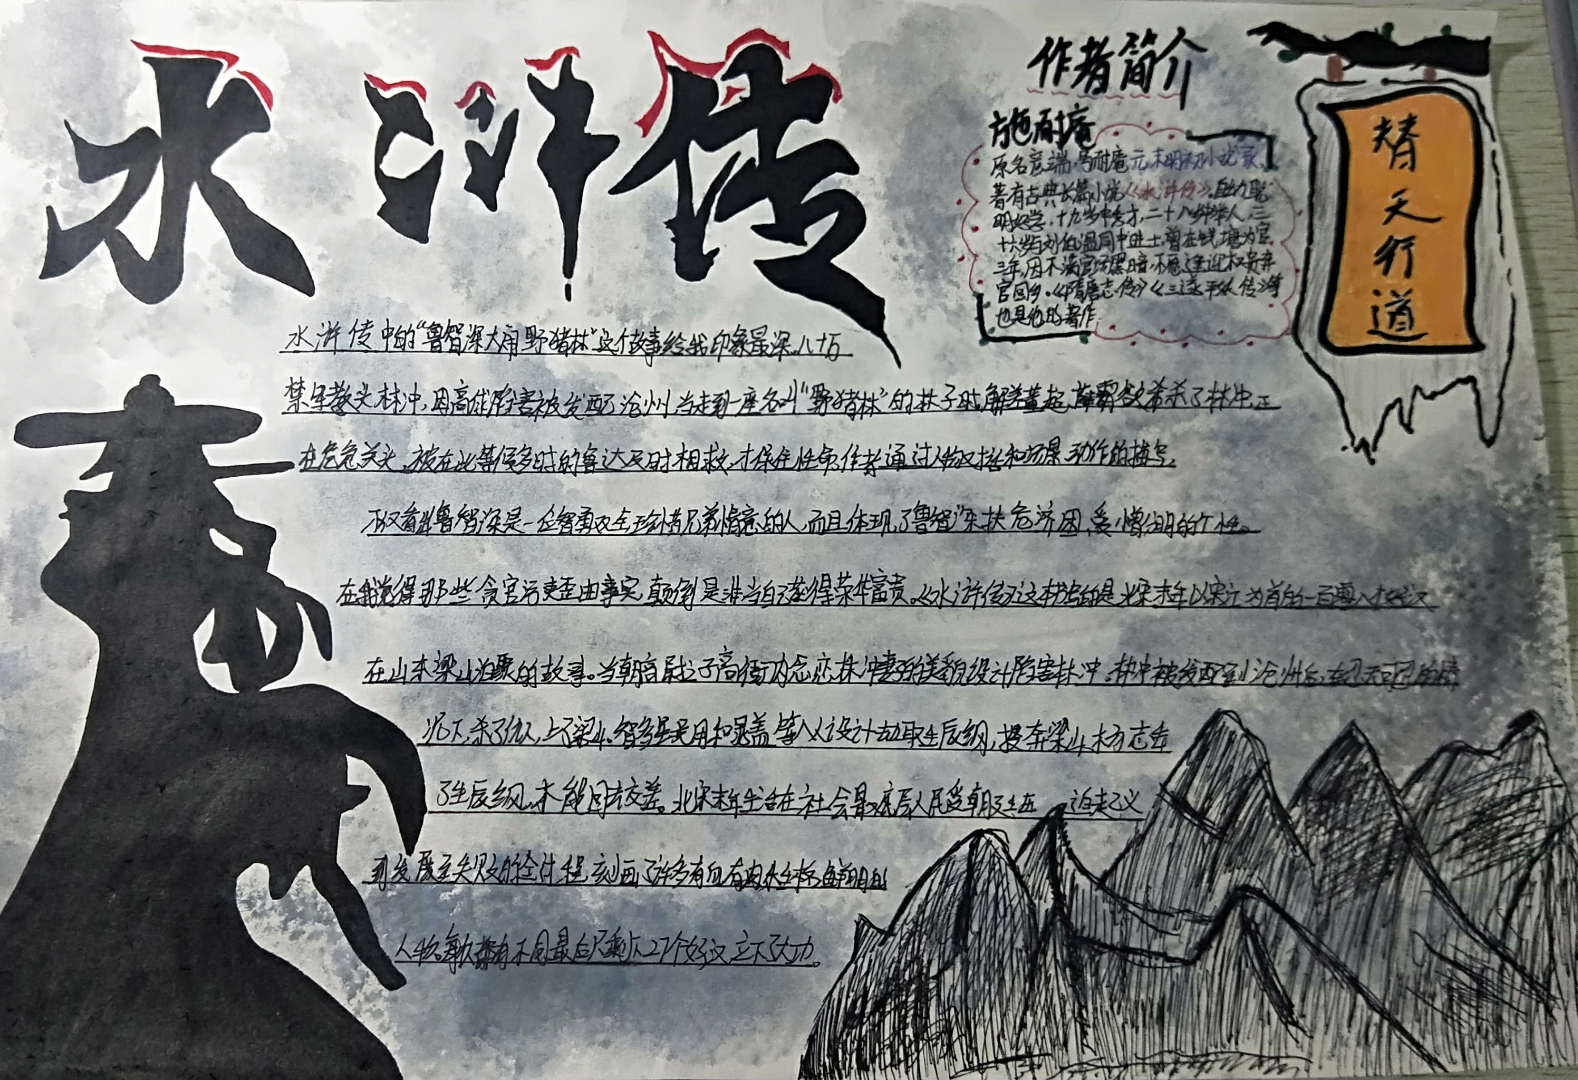 水浒传
作者简介
施耐庵
原名彦端,号耐庵元末明初小说家,
著有古典长篇小说《水浒传》,自幼聪
明好学,十九岁中秀才,二十八岁中举人,三
十六岁与刘伯温同中进士,曾在钱塘为官
三年,因不满官场黑暗,不愿逢迎权贵弃
官回乡。《隋唐志传》《三遂平妖传》等
也是他的著作.
替天行道
水浒传中的“鲁智深大闹野猪林”这个故事给我印象最深.八十万
禁军教头林冲,因高俅陷害被发配了沧州,当走到一座名叫“野猪林”的林子时,解差董超,薛霸欲杀了林冲,正
在危急关头,被在此等候多时的鲁达及时相救,才保住性命,作者通过人物对话和场景动作的描写,
不仅看出鲁智深是一位智勇双全珍惜兄弟情意的人,而且体现了鲁智深扶危济困,爱憎分明的个性。
在我觉得那些贪官污吏歪曲事实,颠倒是非,当白谋得荣华富贵。《水浒传》这本书写的是北宋末年以宋江为首的一百零八好汉
在山东梁山泊聚的故事。当朝官尉之子高衙内恋林冲妻子的美貌设计陷害林冲,林冲被发配到沧州后,在忍无可忍的情
况下,杀了仇人,上了梁山。智多星吴用和晁盖等人设计劫取生辰纲,投奔梁山
了生辰纲,不能回去交差。北宋末年生活在社会最底层人民受朝
到发展至失败的全过程,刻画了许多有血有肉
人物,每人都有不同,最后只剩下27个好汉立下大功。